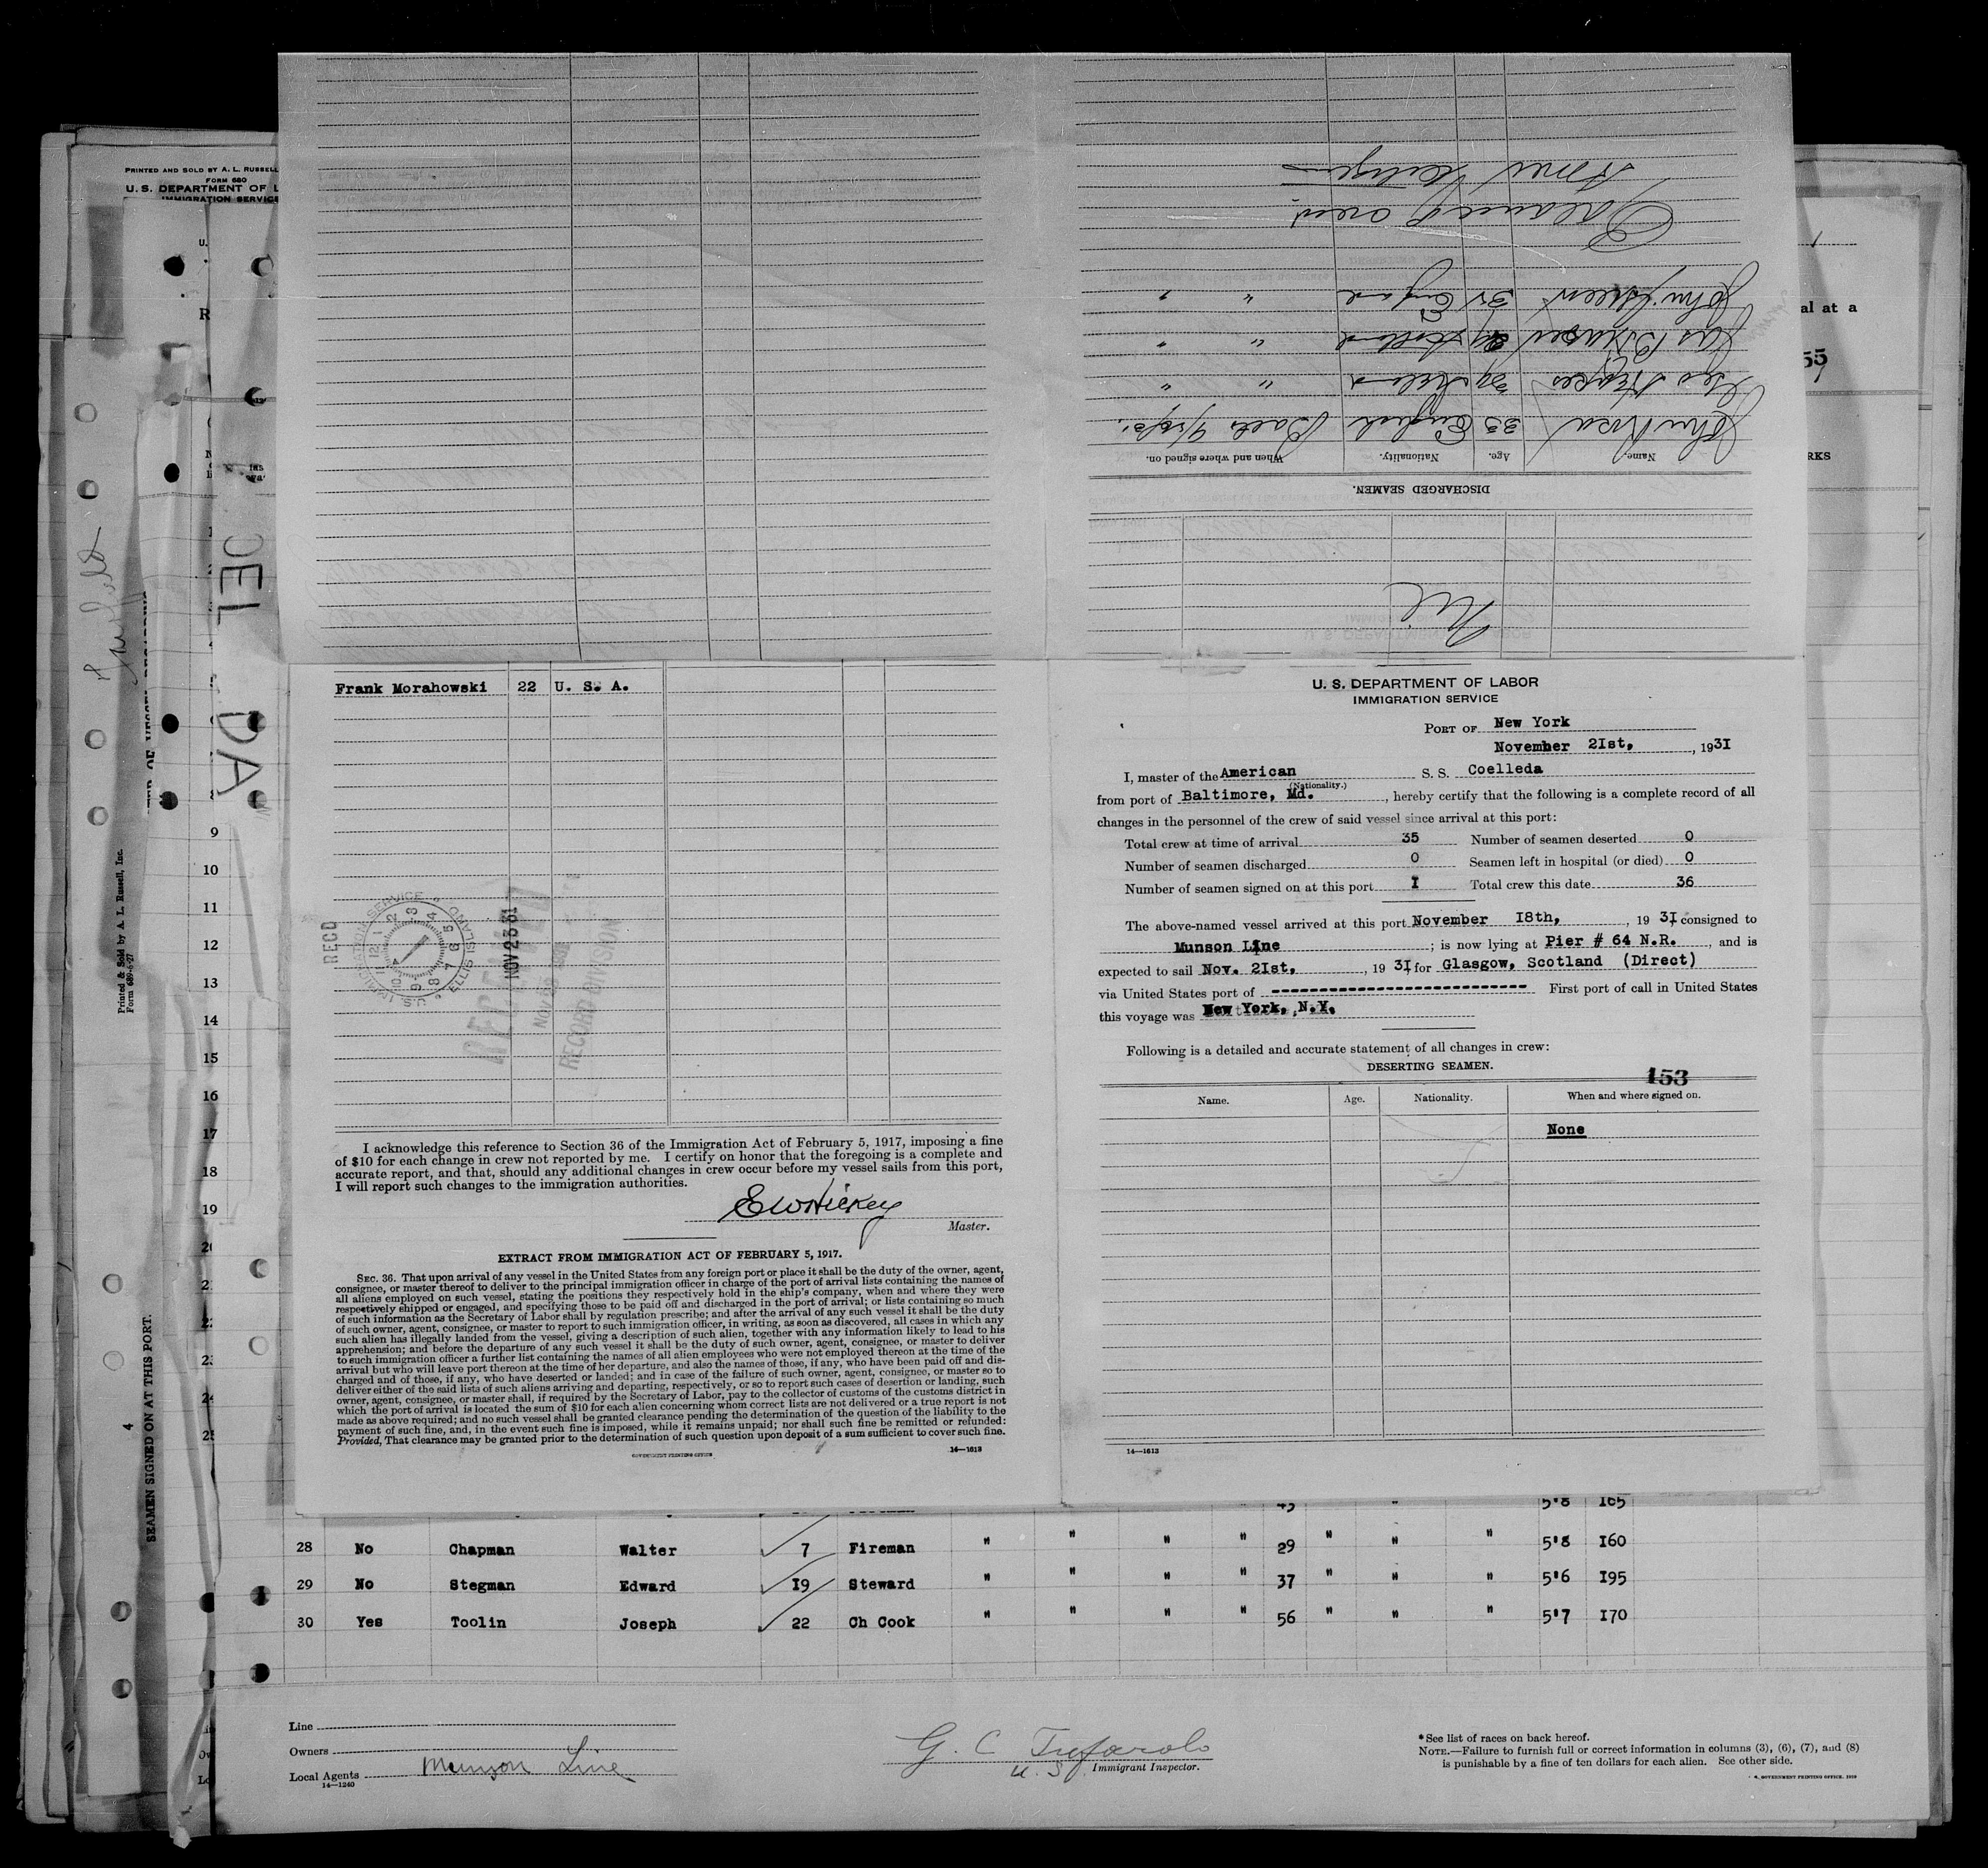 PRINTED AND SOLD BY A. L. RUSSELL
FORM 680
U. S. DEPARTMENT OF L
IMMIGRATION SERVICE
al at a
55
RKS
Balance of crew
John Green 31 England " "
" "
Geo 39 Ireland " "
John 33 English Balto
Name. Age. Nationality. When and where signed on.
DISCHARGED SEAMEN.
Nil
DEL
DA
9
10
11
12
13
14
15
16
17
18
19
Printed & Sold by A. L. Russell, Inc.
Form 689-6-27
4
SEAMEN SIGNED ON AT THIS PORT.
Frank Morahowski 22 U. S. A.
REC'D
U.S. IMMIGRATION SERVICE ELLIS ISLAND
NOV 23 31
RECEIVED
RECORD DIVISION
I acknowledge this reference to Section 36 of the Immigration Act of February 5, 1917, imposing a fine
of $10 for each change in crew not reported by me. I certify on honor that the foregoing is a complete and
accurate report, and that, should any additional changes in crew occur before my vessel sails from this port,
I will report such changes to the immigration authorities.
E W Hickey
Master.
EXTRACT FROM IMMIGRATION ACT OF FEBRUARY 5, 1917.
SEC. 36. That upon arrival of any vessel in the United States from any foreign port or place it shall be the duty of the owner, agent,
consignee, or master thereof to deliver to the principal immigration officer in charge of the port of arrival lists containing the names of
all aliens employed on such vessel, stating the positions they respectively hold in the ship's company, when and where they were
respectively shipped or engaged, and specifying those to be paid off and discharged in the port of arrival; or lists containing so much
of such information as the Secretary of Labor shall by regulation prescribe; and after the arrival of any such vessel it shall be the duty
of such owner, agent, consignee, or master to report to such immigration officer, in writing, as soon as discovered, all cases in which any
such alien has illegally landed from the vessel, giving a description of such alien, together with any information likely to lead to his
apprehension; and before the departure of any such vessel it shall be the duty of such owner, agent, consignee, or master to deliver
to such immigration officer a further list containing the names of all alien employees who were not employed thereon at the time of the
arrival but who will leave port thereon at the time of her departure, and also the names of those, if any, who have been paid off and dis-
charged and of those, if any, who have deserted or landed; and in case of the failure of such owner, agent, consignee, or master so to
deliver either of the said lists of such aliens arriving and departing, respectively, or so to report such cases of desertion or landing, such
owner, agent, consignee, or master shall, if required by the Secretary of Labor, pay to the collector of customs of the customs district in
which the port of arrival is located the sum of $10 for each alien concerning whom correct lists are not delivered or a true report is not
made as above required; and no such vessel shall be granted clearance pending the determination of the question of the liability to the
payment of such fine, and, in the event such fine is imposed, while it remains unpaid; nor shall such fine be remitted or refunded:
Provided, That clearance may be granted prior to the determination of such question upon deposit of a sum sufficient to cover such fine.
GOVERNMENT PRINTING OFFICE 14—1613
U. S. DEPARTMENT OF LABOR
IMMIGRATION SERVICE
PORT OF New York
November 2Ist, , 193I
I, master of the American S. S. Coelleda
(Nationality.)
from port of Baltimore, Md. , hereby certify that the following is a complete record of all
changes in the personnel of the crew of said vessel since arrival at this port:
Total crew at time of arrival 35 Number of seamen deserted 0
Number of seamen discharged 0 Seamen left in hospital (or died) 0
Number of seamen signed on at this port I Total crew this date 36
The above-named vessel arrived at this port November I8th, , 193I, consigned to
Munson Line ; is now lying at Pier # 64 N.R. , and is
expected to sail Nov. 2Ist, , 193I for Glasgow, Scotland (Direct)
via United States port of ---------------------------- First port of call in United States
this voyage was New York, N.Y.
Following is a detailed and accurate statement of all changes in crew:
DESERTING SEAMEN.
153
Name. Age. Nationality. When and where signed on.
None
14—1613
45 " " 5'8 I65
28 No Chapman Walter 7 Fireman " " " " 29 " " " 5'8 I60
29 No Stegman Edward I9 Steward " " " " 37 " " " 5'6 I95
30 Yes Toolin Joseph 22 Ch Cook " " " " 56 " " " 5'7 I70
Line
Owners
Local Agents Munson Line
14—1240
G. C. Tufarolo
U. S. Immigrant Inspector.
* See list of races on back hereof.
NOTE.—Failure to furnish full or correct information in columns (3), (6), (7), and (8)
is punishable by a fine of ten dollars for each alien. See other side.